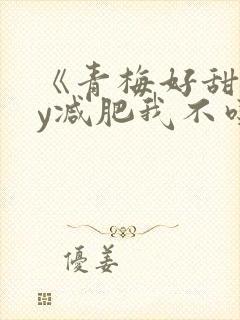 《青梅好甜
y减肥我不吃
優姜